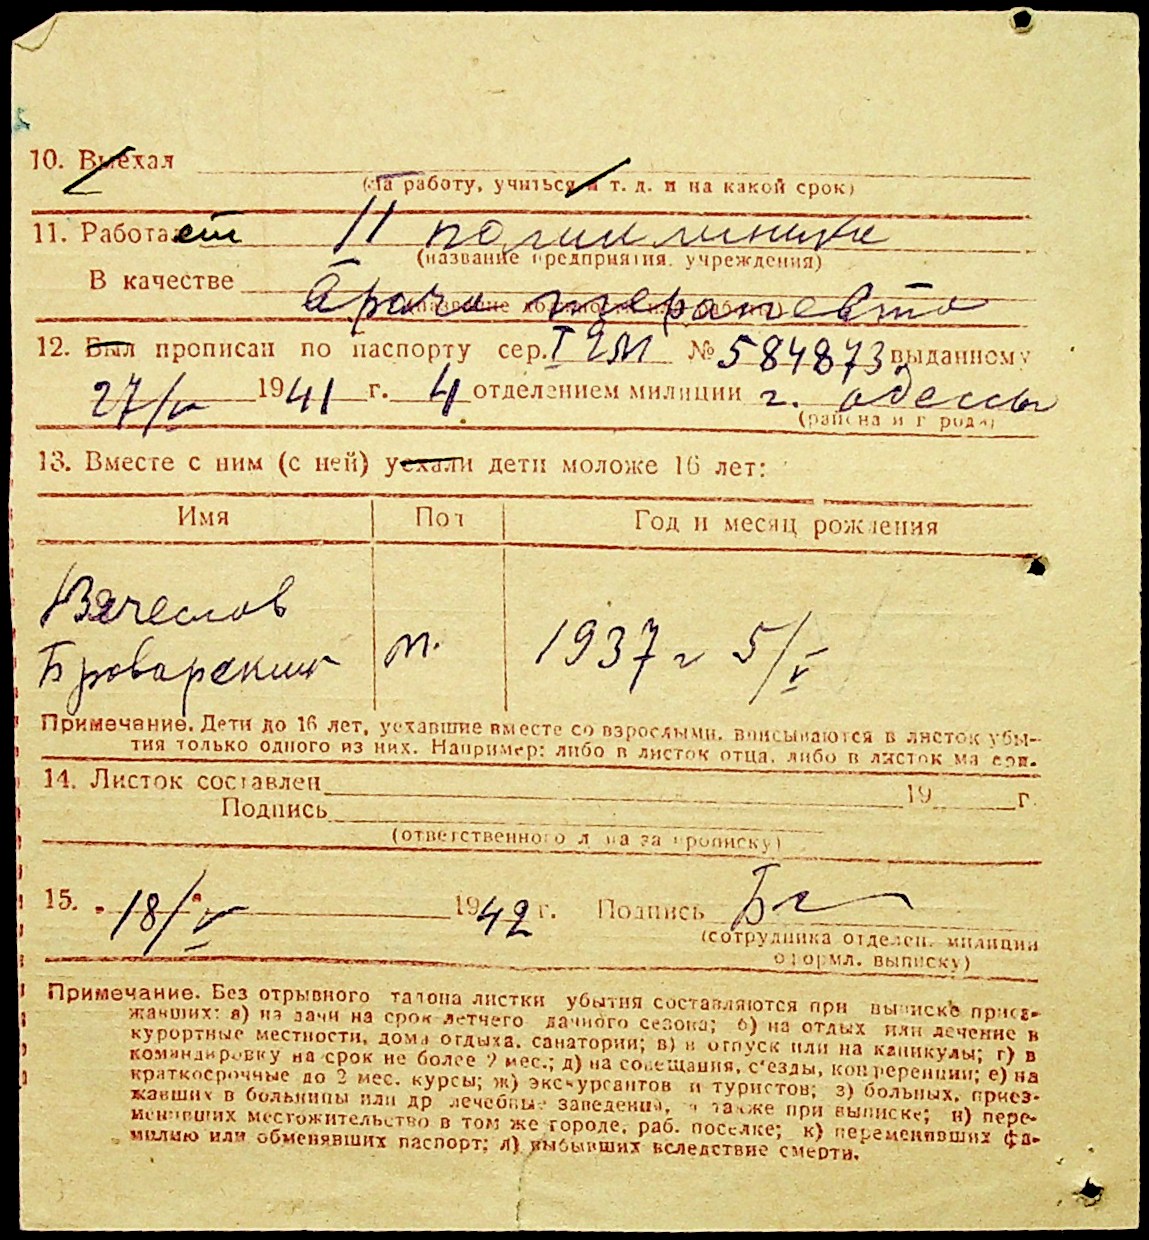 10. Выехал
(на работу, учиться и т. д. и на какой срок)
11. Работает II поликлинике
(название предприятия, учреждения)
В качестве Врача терапевта
12. Был прописан по паспорту сер. I ЕМ № 584873 выданному
27/V 1941 г. 4 отделением милиции г. Одессы
(района и города)
13. Вместе с ним (с ней) уехали дети моложе 16 лет:
Имя Пол Год и месяц рождения
Вячеслав
Броварский м. 1937 г 5/V
Примечание. Дети до 16 лет, уехавшие вместе со взрослыми, вписываются в листок убы-
тия только одного из них. Например: либо в листок отца, либо в листок матери.
14. Листок составлен 19 г.
Подпись
(ответственного лица за прописку)
15. 18/V 1942 г. Подпись
(сотрудника отделен. милиции
оформл. выписку)
Примечание. Без отрывного талона листки убытия составляются при выписке приез-
жавших: а) на дачи на срок летнего дачного сезона; б) на отдых или лечение в
курортные местности, дома отдыха, санатории; в) в отпуск или на каникулы; г) в
командировку на срок не более 2 мес.; д) на совещания, с'езды, конференции; е) на
краткосрочные до 2 мес. курсы; ж) экскурсантов и туристов; з) больных, приез-
жавших в больницы или др лечебные заведения, а также при выписке; и) пере-
менивших местожительство в том же городе, раб. поселке; к) переменивших фа-
милию или обменявших паспорт; л) выбывших вследствие смерти.